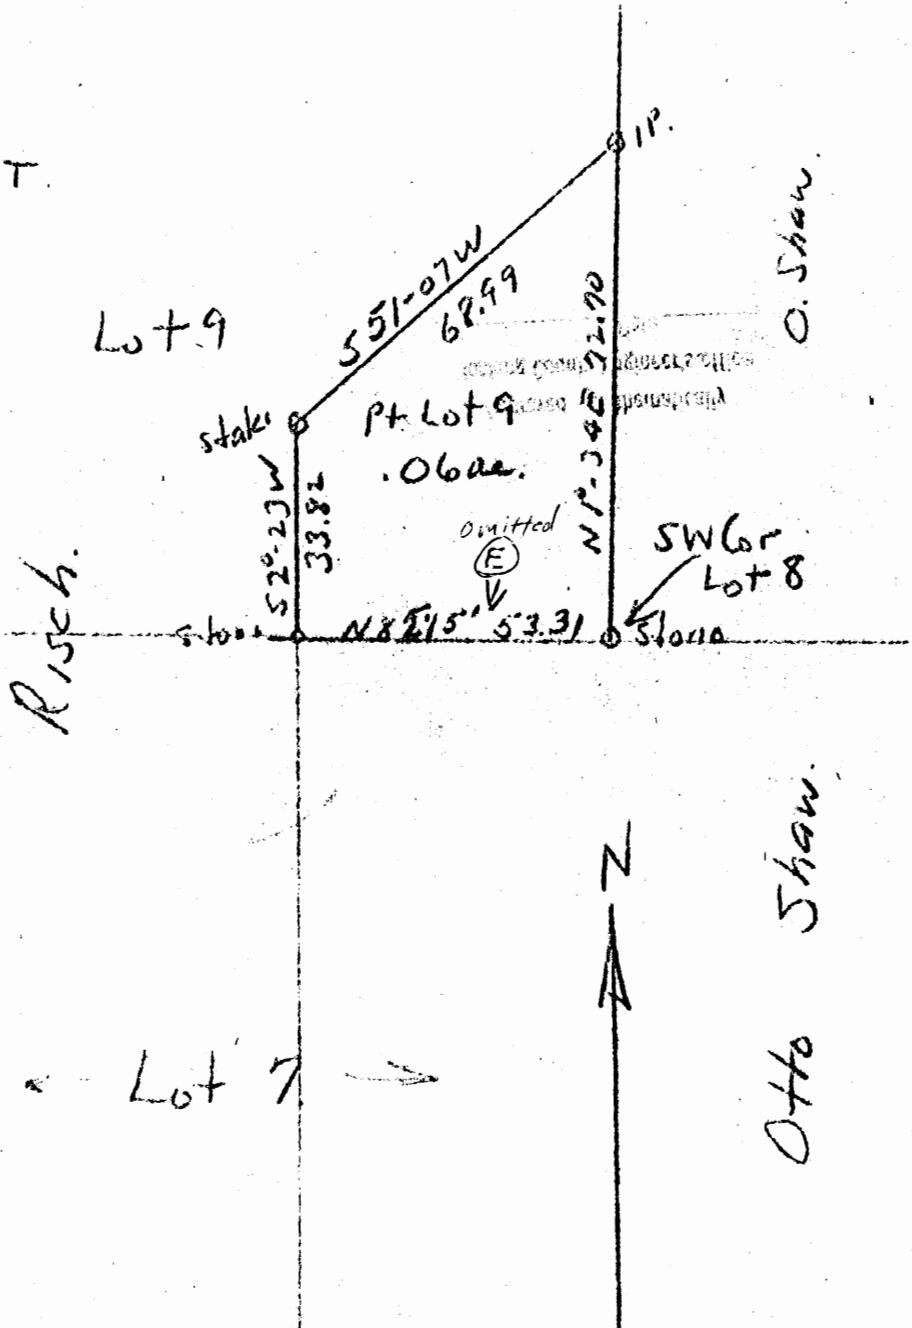 T.
IP.
O. Shaw.
Lot 9
S51-07W
68.99
stake
Pt Lot 9
.06ac.
S2°-23W
33.82
Omitted
E
SW Cor
Lot 8
Risch.
53.31
Stone
N
Otto Shaw.
Lot 7